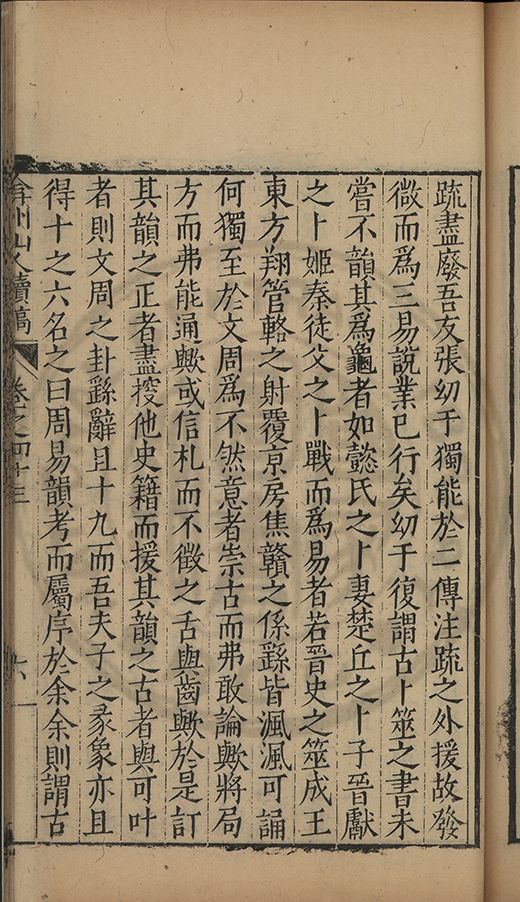 疏盡廢吾友張幼于獨能於二傳注疏之外援故發
微而為三易說業已行矣幼于復謂古卜筮之書未
嘗不韻其為龜者如懿氏之卜妻楚丘之卜子晉獻
之卜姬秦徒父之卜戰而為易者若晉史之筮成王
東方朔管輅之射覆京房焦贛之係繇皆渢渢可誦
何獨至於文周為不然意者崇古而弗敢論歟將局
方而弗能通歟或信札而不徵之舌與齒歟於是訂
其韻之正者盡搜他史籍而援其韻之古者與可叶
者則文周之卦繇辭且十九而吾夫子之彖象亦且
得十之六名之曰周易韻考而屬序於余余則謂古
弇州山人續稿 卷之四十三 六